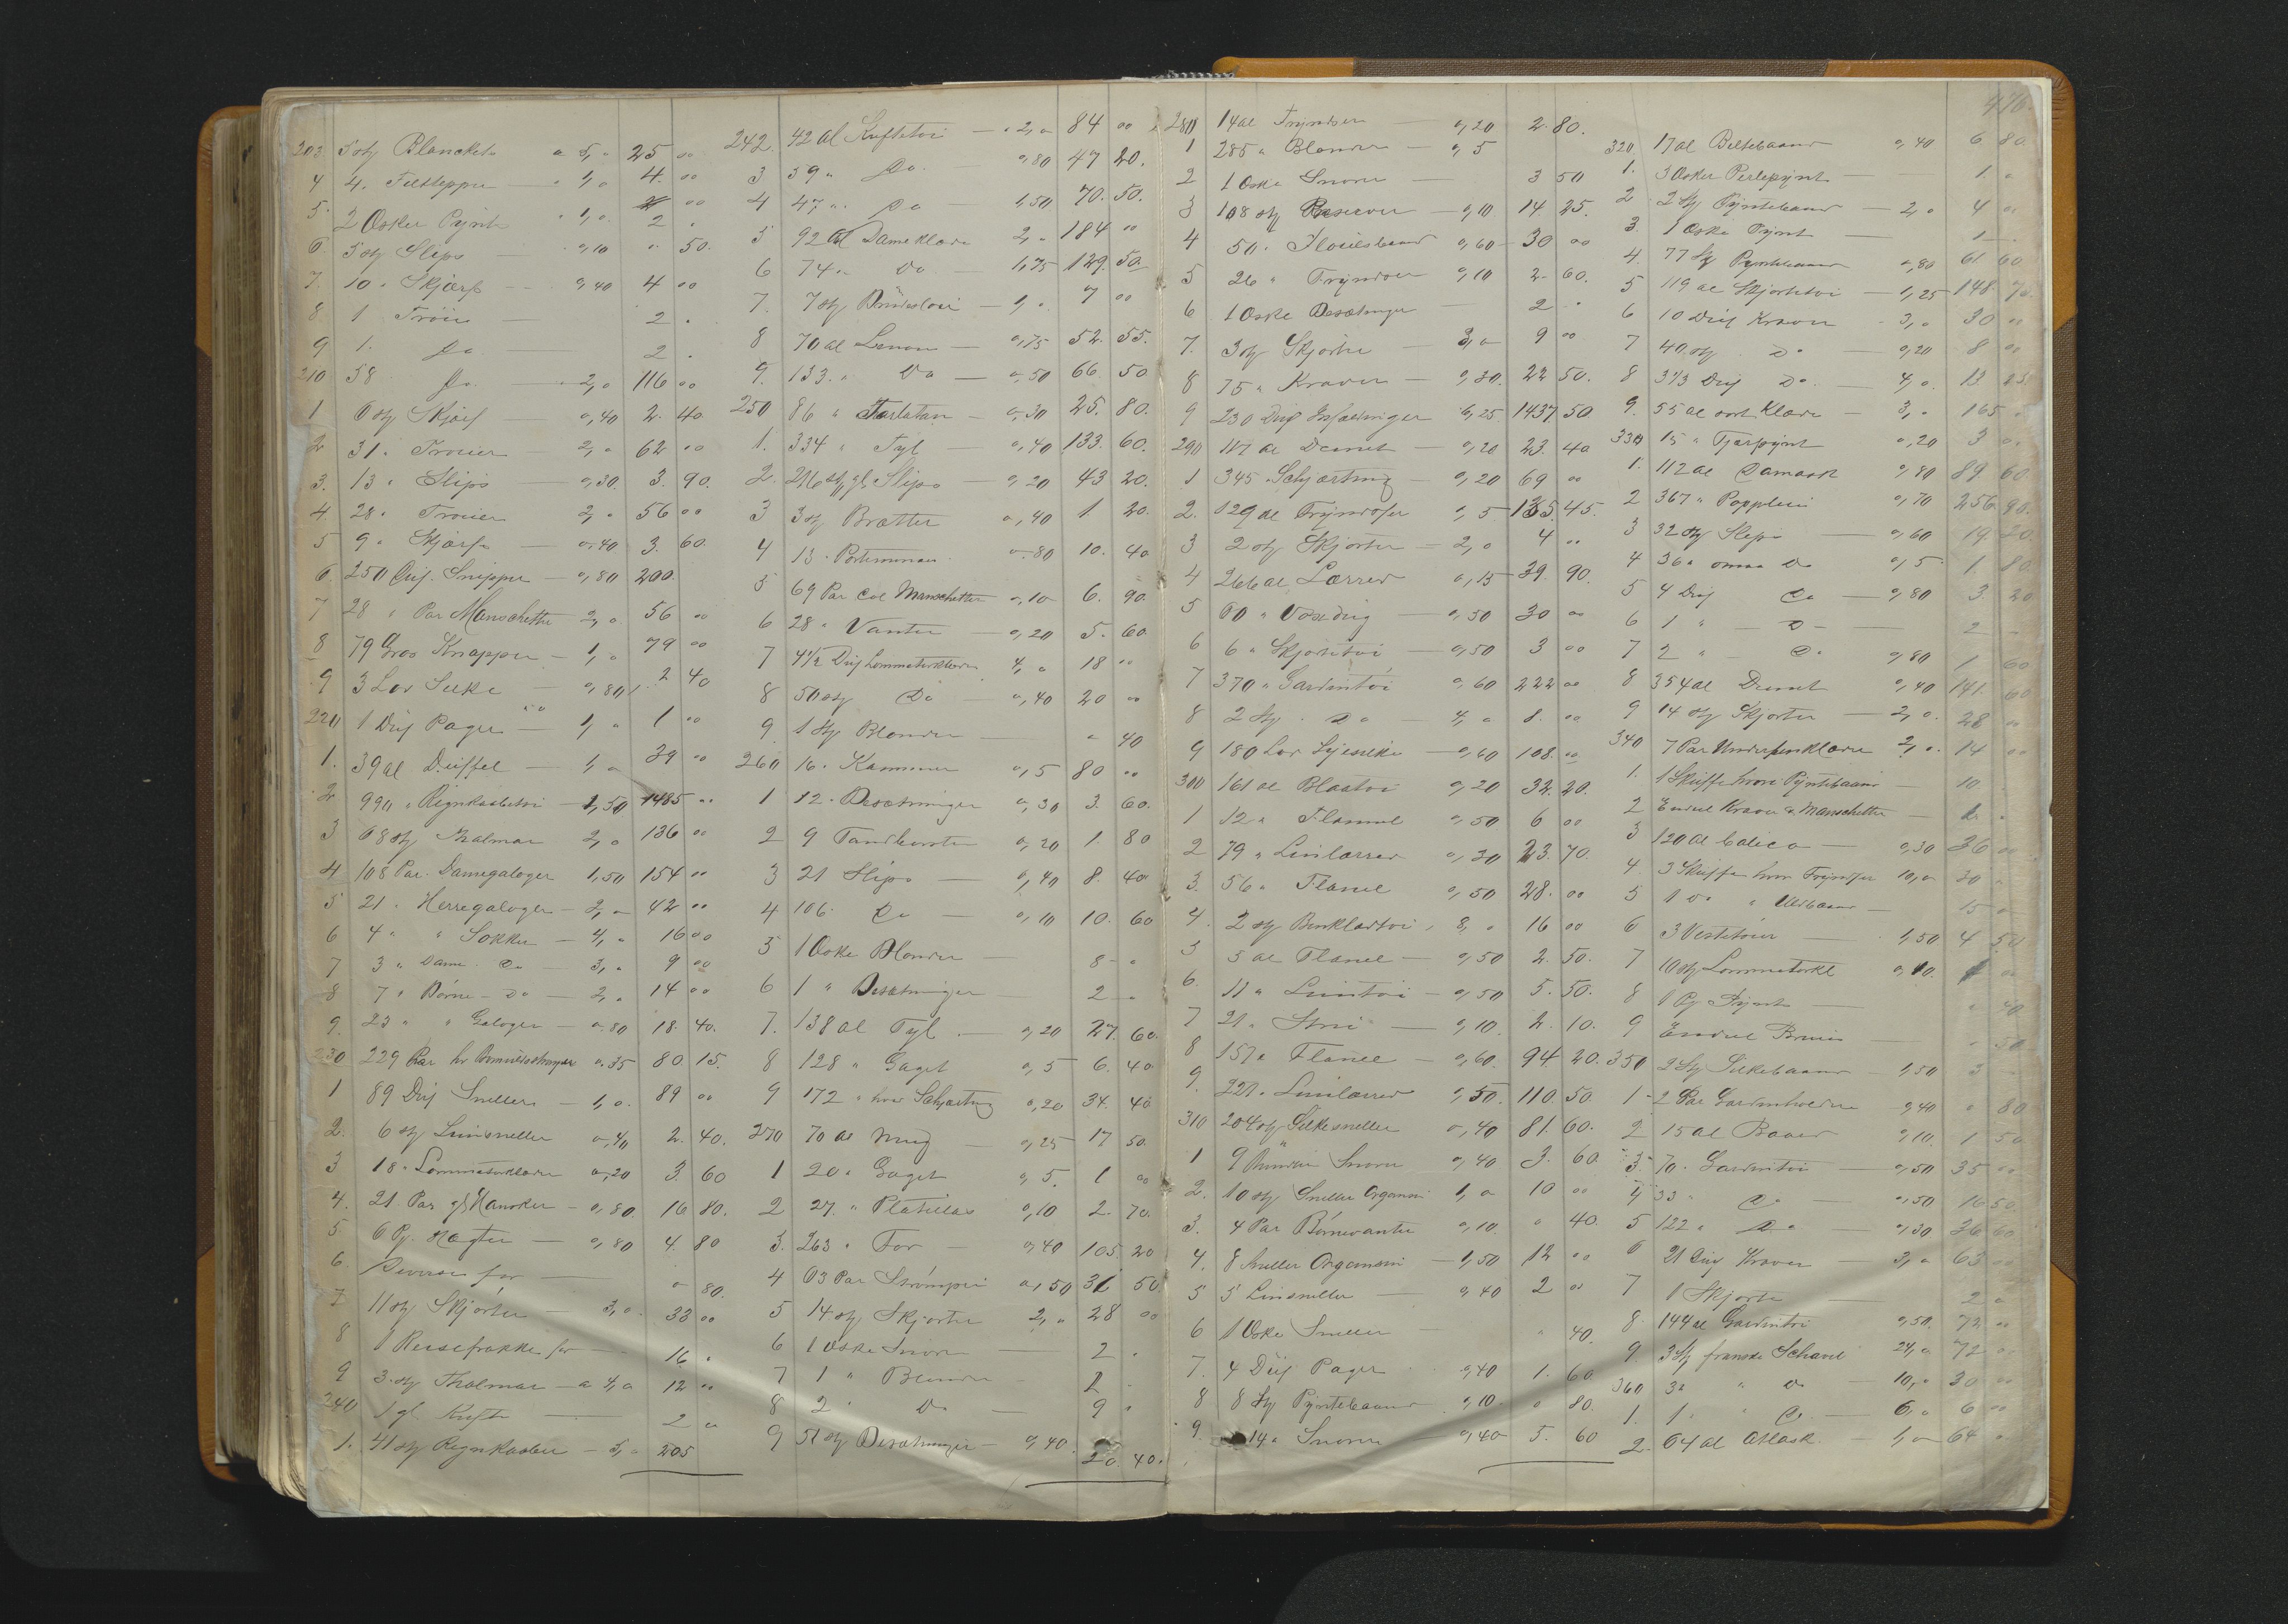 203 5 stk Blanckets a 5,00 25 00
4 4 " Filttepper " 1,00 4 00
5 2 Æsker Pynt " 1,00 2 "
6 5 stk Slips 0,10 " 50
7 10 " Skjærf 0,40 4 00
8 1 Trøie 2 "
9 1 " Do 2 "
210 58 Do 2,00 116 00
1 6 stk Skjærf 0,40 2 40
2 31 " Trøier 2,00 62 00
3 13 " Slips 0,30 3 90
4 28 " Trøier 2,00 56 00
5 9 " Skjærf 0,40 3 60
6 250 Dus. Snipper 0,80 200
7 28 " Par Manschetter 2,00 56 00
8 79 Gros Knapper 1,00 79 00
9 3 Lod Silke 0,80 2 40
220 1 Dus Pager 1,00 1 00
1 39 al Duffel 1,00 39 00
2 990 " Regnkaabetøi 1,50 1485 00
3 68 stk Thalmar 2,00 136 00
4 108 Par Damegaloger 1,50 154 00
5 21 " Herregaloger 2,00 42 00
6 4 " " Sokker 4,00 16 00
7 3 " Dame Do 3,00 9 00
8 7 " Børne Do 2,00 14 00
9 23 " " Galoger 0,80 18 40
230 229 Par hv Bomuldsstrømper 0,35 80 15
1 89 Dus Sneller 1,00 89 00
2 6 stk Linsneller 0,40 2 40
3 18 " Lommetørklæder 0,20 3 60
4 21 Par gl Hansker 0,80 16 80
5 6 Pj. Hægter 0,80 4 80
6 Diverse for " 80
7 11 stk Skjorter 3,00 33 00
8 1 Reisefrakke for 16 "
9 3 stk Thalmar a 4,00 12 00
240 1 gl Kufte 2 00
1 41 stk Regnkaaber 5,00 205
242 42 al Kuftetøi 2,00 84 00
3 59 " Do 0,80 47 20
4 47 " Do 1,50 70 50
5 92 al Dameklæde 2,00 184 00
6 74 " Do 1,75 129 50
7 7 stk 1,00 7 00
8 70 al Lenon 0,75 52 55
9 133 " Do 0,50 66 50
250 86 " Tarlatan 0,30 25 80
1 334 " Tyl 0,40 133 60
2 216 stk gl Slips 0,20 43 20
3 3 stk Brætter 0,40 1 20
4 13 " Portemonnai 0,80 10 40
5 69 Par Col Manschetter 0,10 6 90
6 28 " Vanter 0,20 5 60
7 4 1/2 Dus Lommetørklæder 4,00 18 00
8 50 stk Do 0,40 20 00
9 1 stk Blonder " 40
260 16 " Kammer 0,5 80 00
1 12 " Besætninger 0,30 3 60
2 9 Tandbørster 0,20 1 80
3 21 Slips 0,40 8 40
4 106 Do 0,10 10 60
5 1 Æske Blonder 8 "
6 1 " Besætninger 2 "
7 138 al Tyl 0,20 27 60
8 128 " Gaget 0,5 6 40
9 172 " hvid Schjærting 0,20 34 40
270 70 al Mug 0,25 17 50
1 20 " Gaget 0,5 1 00
2 27 " Platillas 0,10 2 70
3 263 " For 0,40 105 20
4 63 Par Strømper 0,50 31 50
5 14 stk Skjorter 2,00 28 00
6 1 Æske Snore 2 "
7 1 " Blonder 2
8 2 " Do 9 "
9 51 stk Besætninger 0,40 20 40
280 14 al Fryndser 0,20 2 80
1 285 " Blonder 0,5
2 1 Æske Snore 3 50
3 108 stk 0,10 14 25
4 50 " Fløielsbaand 0,60 30 00
5 26 " Fryndser 0,10 2 60
6 1 Æske Besætninger 2 "
7 3 stk Skjorter 3,00 9 00
8 75 " Kraver 0,30 22 50
9 230 Dus Indfatninger 6,25 1437 50
290 117 al Demet 0,20 23 40
1 345 " Schjærting 0,20 69 00
2 129 al Fryndser 0,5 135 45
3 2 stk Skjorter 2,00 4 00
4 266 al Lærred 0,15 39 90
5 60 " Voxdug 0,50 30 00
6 6 " Skjortetøi 0,50 3 00
7 370 " Gardintøi 0,60 222 00
8 2 stk Do 4,00 8 00
9 180 Lod Syesilke 0,60 108 00
300 161 al Blaatøi 0,20 32 20
1 12 " Flannel 0,50 6 00
2 79 " Linlærred 0,30 23 70
3 56 " Flanel 0,50 28 00
4 2 stk Benklædtøi 8,00 16 00
5 5 al Flanel 0,50 2 50
6 11 " Lintøi 0,50 5 50
7 21 " Strie 0,10 2 10
8 157 " Flanel 0,60 94 20
9 221 " Linlærred 0,50 110 50
310 204 stk Silkesneller 0,40 81 60
1 9 Snore 0,40 3 60
2 10 stk Sneller Organsin 1,00 10 00
3 4 Par Børnevanter 0,10 " 40
4 8 Sneller Organsin 1,50 12 00
5 5 Linsneller 0,40 2 00
6 1 Æske Sneller " 40
7 4 Dus Pager 0,40 1 60
8 8 Stk Pyntebaand 0,10 " 80
9 14 " Snore 0,40 5 60
476
320 17 al Beltebaand 0,40 6 80
1 3 Æsker Perlepynt 1 "
2 2 Stk Pyntebaand 2,00 4 00
3 1 Æske Pynt 1
4 77 Stk Pyntebaand 0,80 61 60
5 119 al Skjortetøi 1,25 148 75
6 10 Dus Kraver 3,00 30 00
7 40 stk Do 0,20 8 00
8 3 1/3 Dus Do 4,00 13 25
9 55 al sort Klæde 3,00 165 "
330 15 " Tjærpynt 0,20 3 00
1 112 al Damask 0,80 89 60
2 367 " Popplin 0,70 256 90
3 32 stk Slips 0,60 19 20
4 36 " smaa Do 0,5 1 80
5 4 Dus Do 0,80 3 20
6 1 " Do 2
7 2 " Do 0,80 1 60
8 354 al Demet 0,40 141 60
9 14 stk Skjorter 2,00 28 00
340 7 Par Underbenklæder 2,00 14 00
1 1 Skuffe hvori Pyntebaand 10
2 Endel Kraver & Manschetter
3 120 al Calico 0,30 36 00
4 3 Skuffer hvori Fryndser 10,00 30 "
5 1 Do " Uldbaand 15 "
6 3 Vestetøier 1,50 4 50
7 10 stk Lommetørkl 0,10 1 00
8 1 Pj Pynt " 40
9 Endel " 50
350 2 Stk Silkebaand 1,50 3
1 2 Par Gardinholdere 0,40 " 80
2 15 al Baand 0,10 1 50
3 70 " Gardintøi 0,50 35 00
4 33 " Do 0,50 16 50
5 122 " Do 0,30 36 60
6 21 Dus Kraver 3,00 63 00
7 1 Skjorte 2 "
8 144 al Gardintøi 0,50 72 00
9 3 Stk franske Schavl 24,00 72 00
360 3 " " Do 10,00 30 00
1 1 " " Do 6,00 6 00
2 64 al Atlask 1,00 64 "